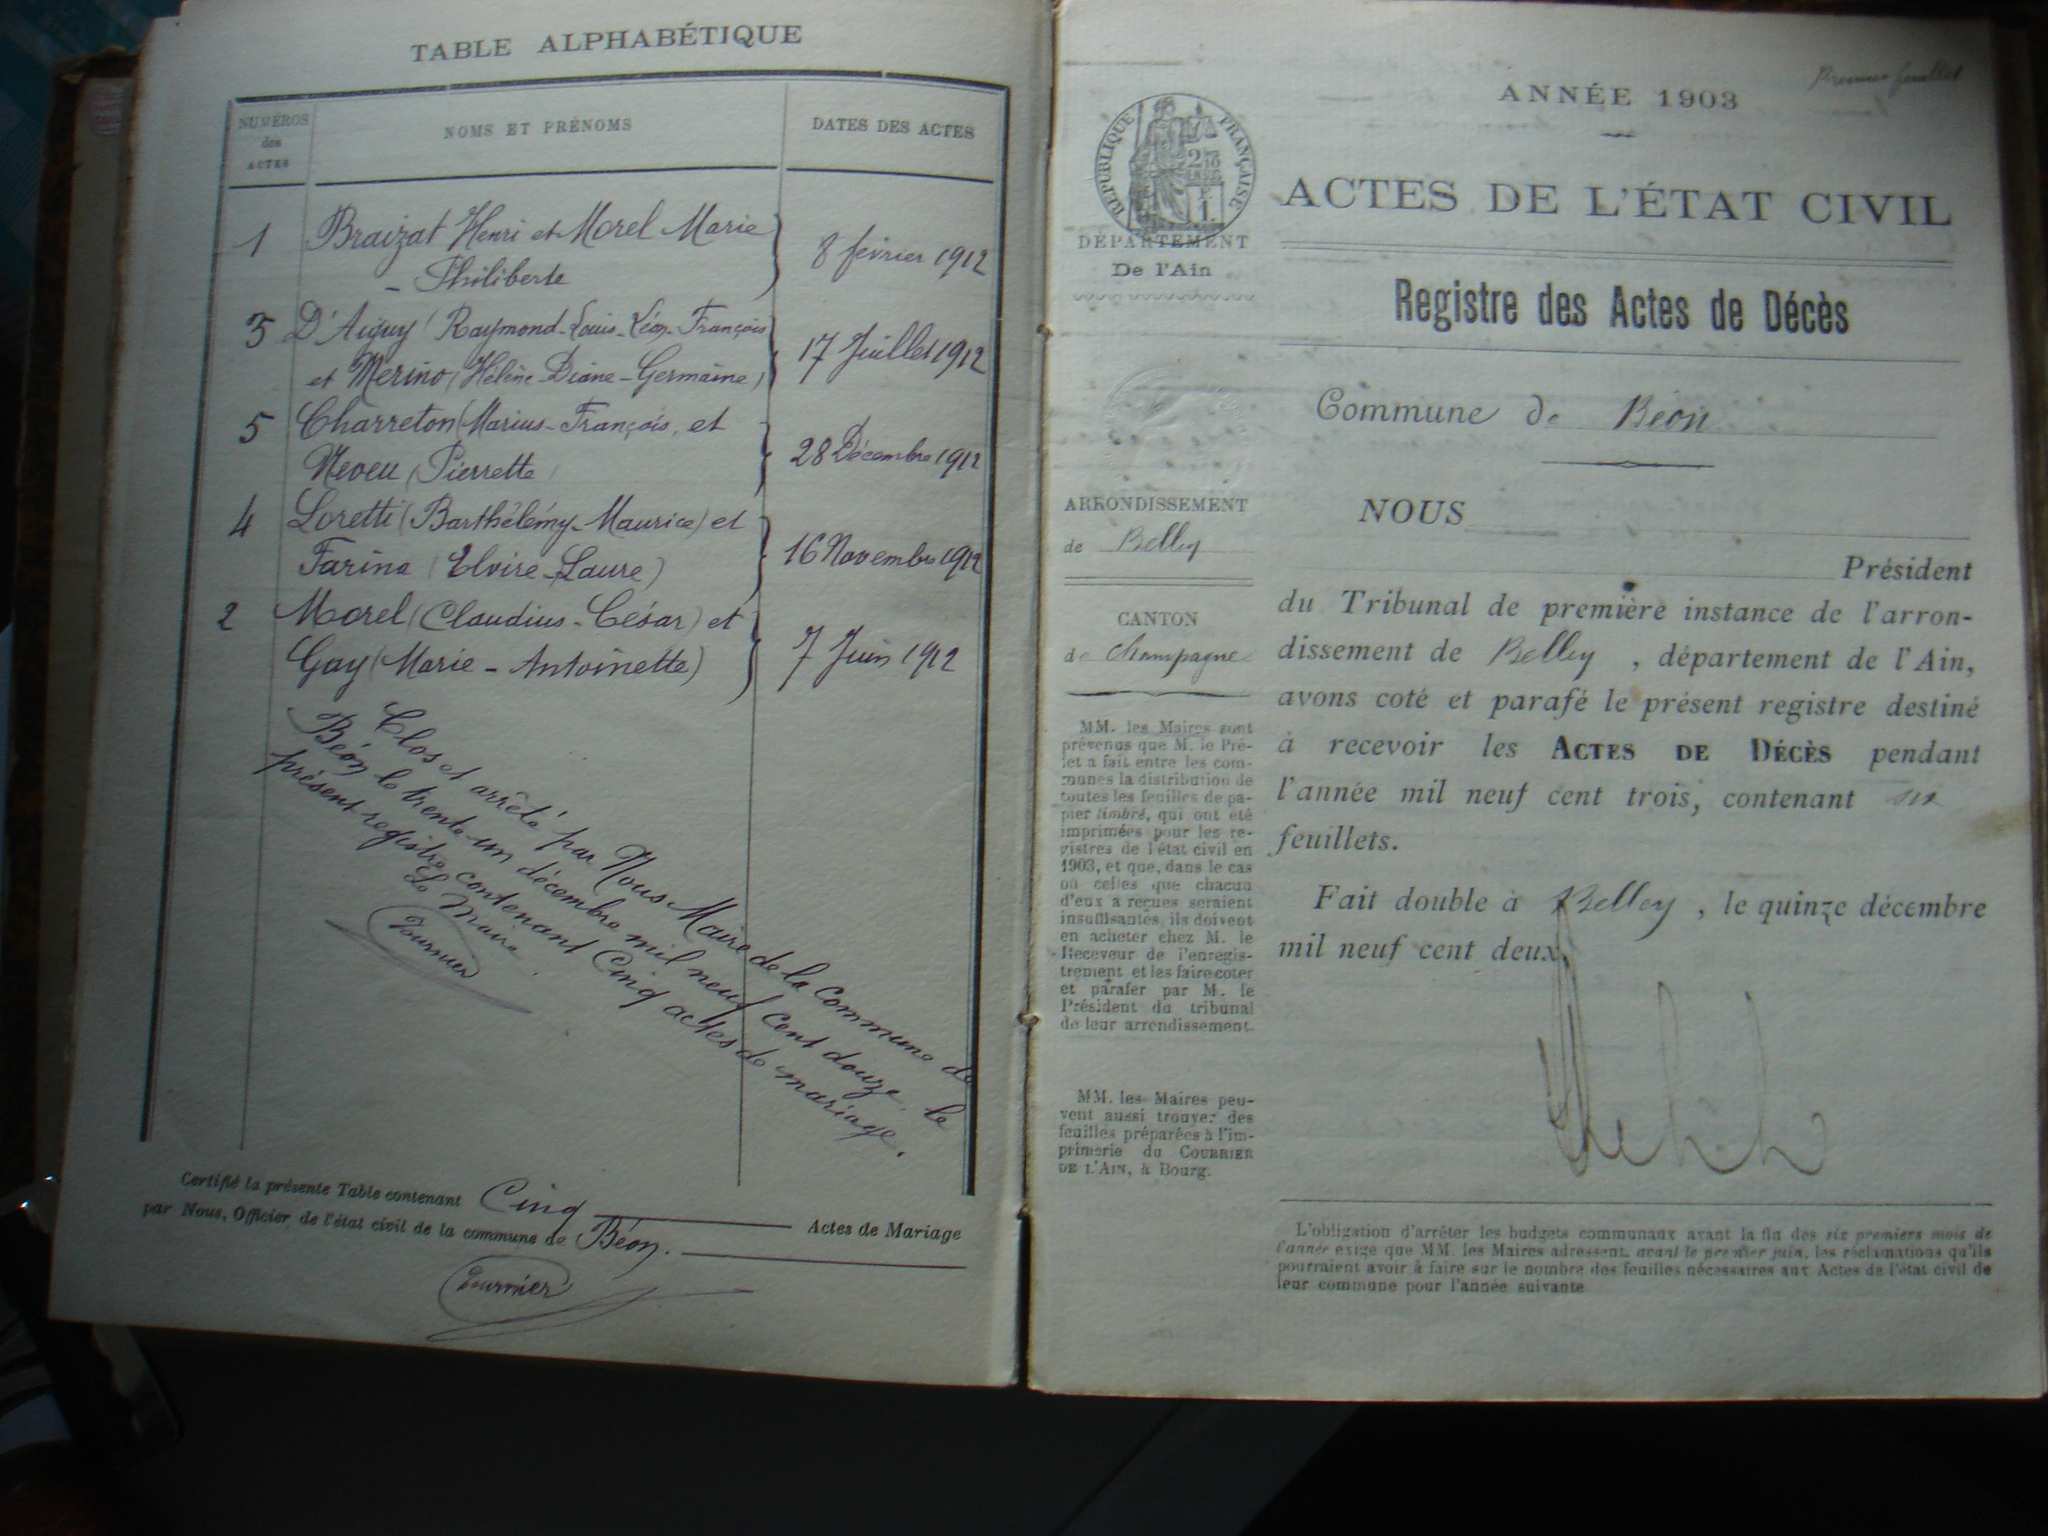 TABLE ALPHABÉTIQUE
NUMÉROS
des
ACTES
NOMS ET PRÉNOMS
DATES DES ACTES
1 Braizat Henri et Morel Marie
- Philiberte
8 février 1912
3 D'Aiguy (Raymond-Louis-Léon-François
et Merino (Hélène Diane-Germaine)
17 Juillet 1912
5 Charreton (Marius-François, et
Neveu (Pierrette)
28 Décembre 1912
4 Loretti (Barthélémy-Maurice) et
Farina (Elvire-Laure)
16 Novembre 1912
2 Morel (Claudius-César) et
Gay (Marie-Antoinette)
7 Juin 1912
Clos et arrêté par Nous Maire de la commune de
Béon le trente-un décembre mil neuf cent douze, le
présent registre contenant Cinq actes de mariage.
Le Maire.
Tournier
Certifié la présente Table contenant Cinq Actes de Mariage
par Nous, Officier de l'état civil de la commune de Béon.
Tournier
Premier feuillet
ANNÉE 1903
RÉPUBLIQUE FRANÇAISE
DÉPARTEMENT
De l'Ain
ACTES DE L'ÉTAT CIVIL
Registre des Actes de Décès
Commune de Béon
ARRONDISSEMENT
de Belley
CANTON
de Champagne
MM. les Maires sont
prévenus que M. le Pré-
fet a fait entre les com-
munes la distribution de
toutes les feuilles de pa-
pier timbré, qui ont été
imprimées pour les re-
gistres de l'état civil en
1903, et que, dans le cas
où celles que chacun
d'eux a reçues seraient
insuffisantes, ils doivent
en acheter chez M. le
Receveur de l'enregis-
trement et les faire coter
et parafer par M. le
Président du tribunal
de leur arrondissement.
MM. les Maires peu-
vent aussi trouver des
feuilles préparées à l'im-
primerie du COURRIER
DE L'AIN, à Bourg.
NOUS
Président
du Tribunal de première instance de l'arron-
dissement de Belley, département de l'Ain,
avons coté et parafé le présent registre destiné
à recevoir les ACTES DE DÉCÈS pendant
l'année mil neuf cent trois, contenant
feuillets.
Fait double à Belley, le quinze décembre
mil neuf cent deux.
L'obligation d'arrêter les budgets communaux avant la fin des six premiers mois de
l'année exige que MM. les Maires adressent, avant le premier juin, les réclamations qu'ils
pourraient avoir à faire sur le nombre des feuilles nécessaires aux Actes de l'état civil de
leur commune pour l'année suivante